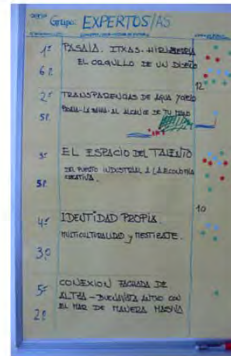 Grupo: EXPERTOS/AS
1º PASAIA. ITXAS-HIRI
EL ORGULLO DE UN
6 P.
12
2º TRANSPARENCIAS DE AGUA Y CIELO
AL ALCANCE DE TU MANO
5P.
3º EL ESPACIO DEL TALENTO
DEL PUERTO INDUSTRIAL A LA ECONOMÍA
5P. CREATIVA.
10
4º IDENTIDAD PROPIA.
MULTICULTURALIDAD Y MESTIZAJE.
3P
5º CONEXION
ALTZA - BUENAVISTA ANTXO CON
2P EL MAR DE MANERA